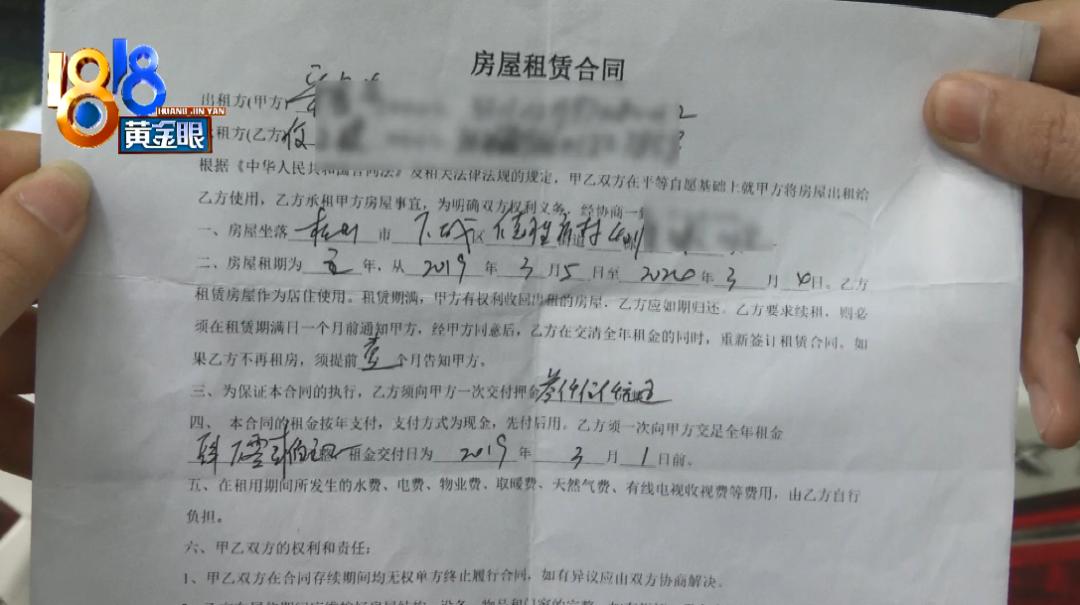 1818
HUANG JIN YAN
黄金眼
房屋租赁合同
出租方(甲方)
租方(乙方)
根据《中华人民共和国合同法》及相关法律法规的规定，甲乙双方在平等自愿基础上就甲方将房屋出租给
乙方使用，乙方承租甲方房屋事宜，为明确双方权利义务，经协商一
一、房屋坐落 杭州 市 下城区
二、房屋租期为 五 年，从 2019 年 3 月 5 日至 2024 年 3 月 4 日。乙方
租赁房屋作为居住使用。租赁期满，甲方有权利收回出租的房屋，乙方应如期归还。乙方要求续租，则必
须在租赁期满日一个月前通知甲方，经甲方同意后，乙方在交清全年租金的同时，重新签订租赁合同。如
果乙方不再租房，须提前 壹 个月告知甲方。
三、为保证本合同的执行，乙方须向甲方一次交付押金
四、本合同的租金按年支付，支付方式为现金，先付后用。乙方须一次向甲方交足全年租金
租金交付日为 2019 年 3 月 1 日前。
五、在租用期间所发生的水费、电费、物业费、取暖费、天然气费、有线电视收视费等费用，由乙方自行
负担。
六、甲乙双方的权利和责任：
1、甲乙双方在合同存续期间均无权单方终止履行合同，如有异议应由双方协商解决。